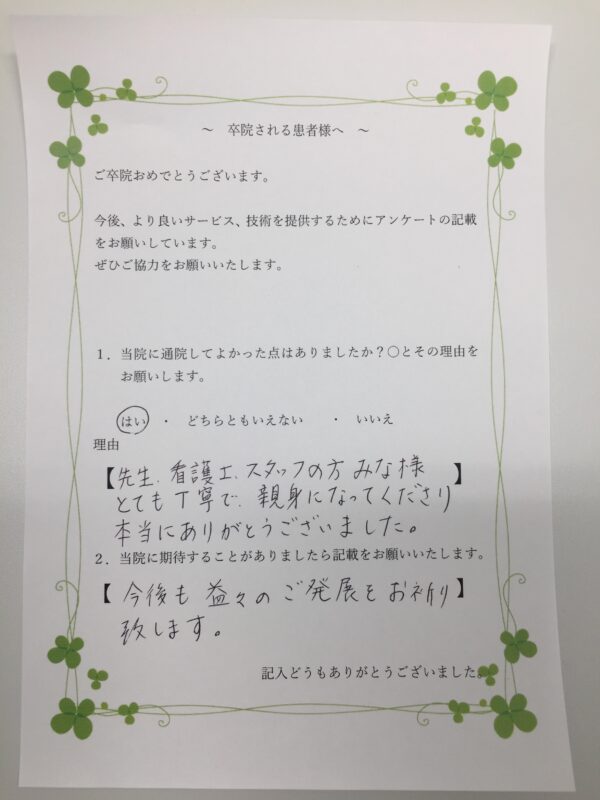 ～ 卒院される患者様へ ～
ご卒院おめでとうございます。
今後、より良いサービス、技術を提供するためにアンケートの記載
をお願いしています。
ぜひご協力をお願いいたします。
１．当院に通院してよかった点はありましたか？○とその理由を
お願いします。
はい ・ どちらともいえない ・ いいえ
理由
【先生、看護士、スタッフの方 みな様】
とても丁寧で、親身になってくださり
本当にありがとうございました。
２．当院に期待することがありましたら記載をお願いいたします。
【今後も 益々の ご発展を お祈り】
致します。
記入どうもありがとうございました。